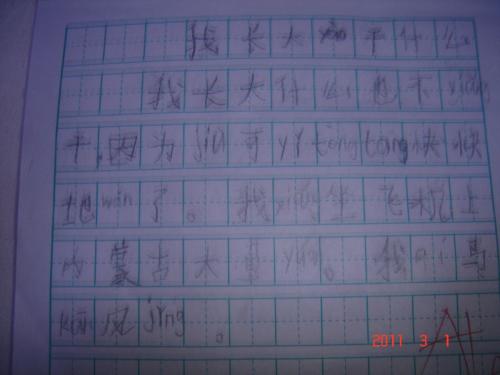 我长大干什么
我长大什么也不xiǎng
干,因为jiù可yǐ tòng tòng快快
地wán了。我xiǎng坐飞机上
内蒙古大草yuán。我qí马
kàn风jǐng。
2011 3 1
A+